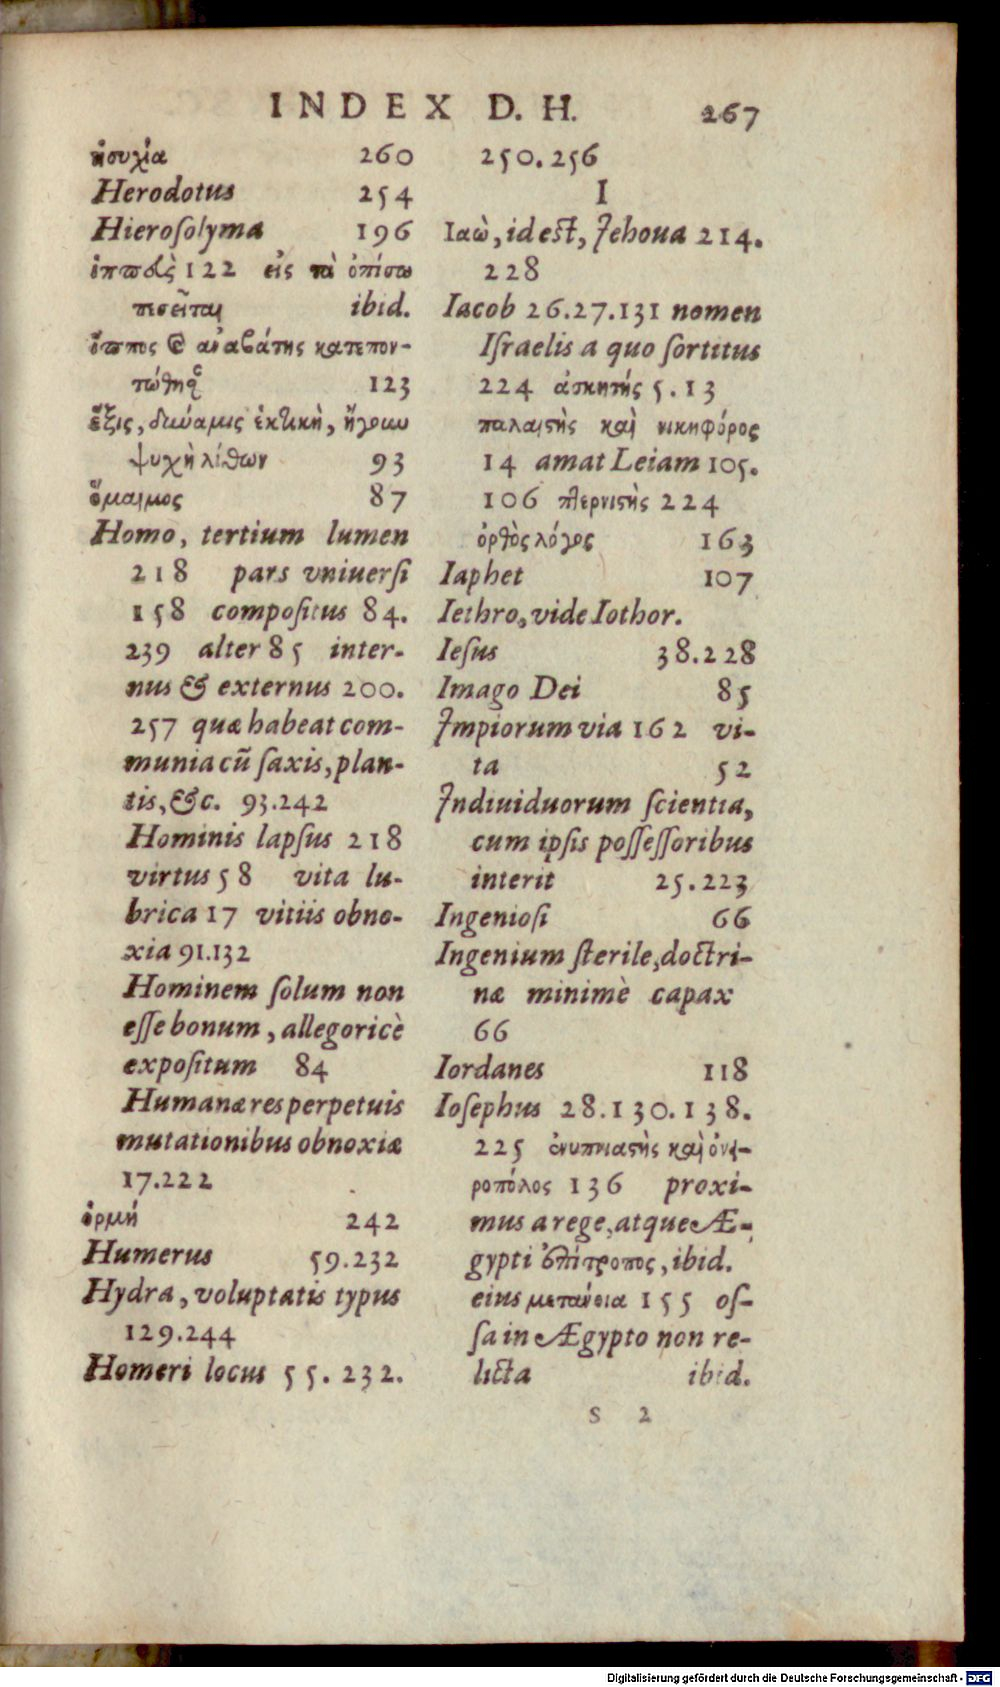 INDEX D. H. 267
ἡσυχία 260
Herodotus 254
Hieroſolyma 196
ἱππεὺς 122 εἰς τὰ ὀπίσω
πεσεῖται ibid.
ἵππος & ἀναβάτης κατεπον-
τώθησ 123
ἕξις, δύναμις ἑκτικὴ, ἤγουν
ψυχὴ λίθων 93
ὅμαιμος 87
Homo, tertium lumen
218 pars vniuerſi
158 compoſitus 84.
239 alter 85 inter-
nus & externus 200.
257 quæ habeat com-
munia cũ ſaxis, plan-
tis, &c. 93.242
Hominis lapſus 218
virtus 58 vita lu-
brica 17 vitiis obno-
xia 91.132
Hominem ſolum non
eſſe bonum, allegoricè
expoſitum 84
Humanæ res perpetuis
mutationibus obnoxiæ
17.222
ὁρμή 242
Humerus 59.232
Hydra, voluptatis typus
129.244
Homeri locus 55. 232.
250.256
I
Ιαὼ, id est, Jehoua 214.
228
Iacob 26.27.131 nomen
Iſraelis a quo ſortitus
224 ἀσκητής 5.13
παλαιστὴς καὶ νικηφόρος
14 amat Leiam 105.
106 πτερνιστὴς 224
ὀρθὸς λόγος 163
Iaphet 107
Iethro, vide Iothor.
Ieſus 38.228
Imago Dei 85
Jmpiorum via 162 vi-
ta 52
Jndiuiduorum ſcientia,
cum ipſis poſſeſſoribus
interit 25.223
Ingenioſi 66
Ingenium ſterile, doctri-
næ minimè capax
66
Iordanes 118
Ioſephus 28.130.138.
225 ἐνυπνιαστὴς καὶ ὀνει-
ροπόλος 136 proxi-
mus a rege, atque Æ-
gypti ἐπίτροπος, ibid.
eius μετάνοια 155 oſ-
ſa in Ægypto non re-
licta ibid.
S 2
Digitalisierung gefördert durch die Deutsche Forschungsgemeinschaft - DFG